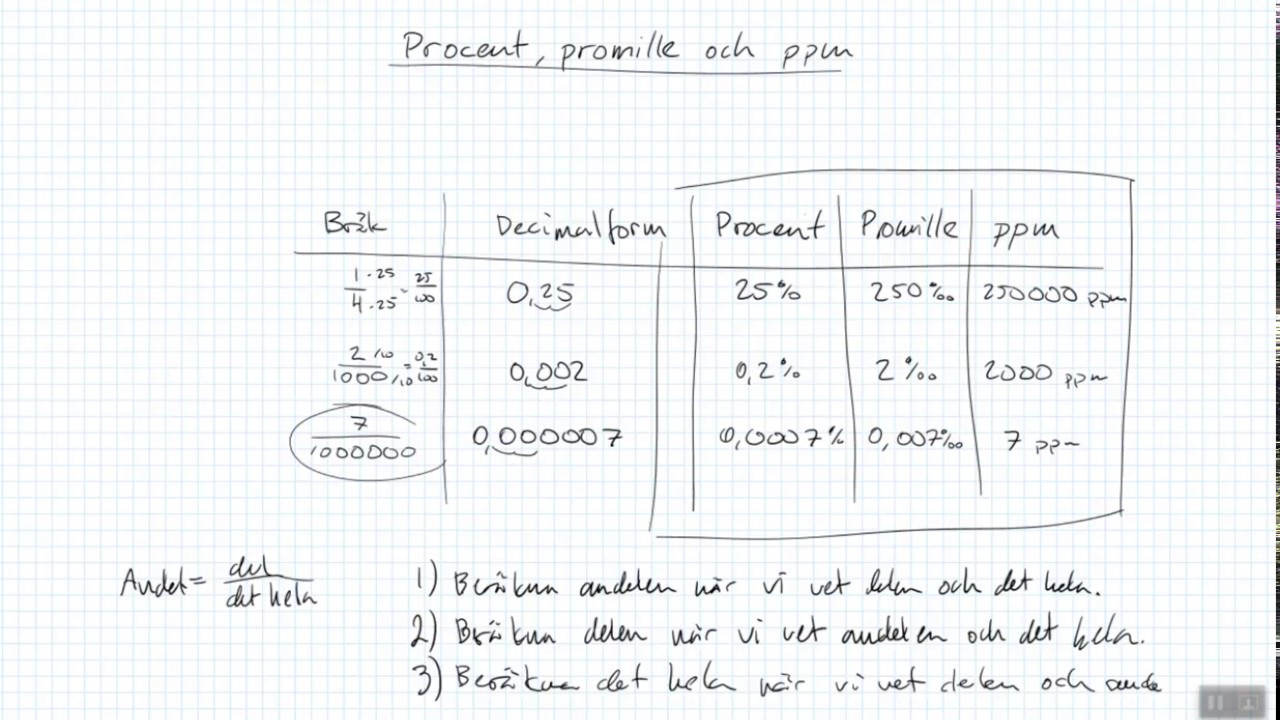 Procent, promille och ppm
Bråk Decimalform Procent Promille ppm
1·25/4·25 = 25/100 0,25 25% 250‰ 250000 ppm
2/10/1000/10 = 0,2/100 0,002 0,2% 2‰ 2000 ppm
7/1000000 0,000007 0,0007% 0,007‰ 7 ppm
Andel = del/det hela
1) Beräkna andelen när vi vet delen och det hela.
2) Beräkna delen när vi vet andelen och det hela.
3) Beräkna det hela när vi vet delen och ande